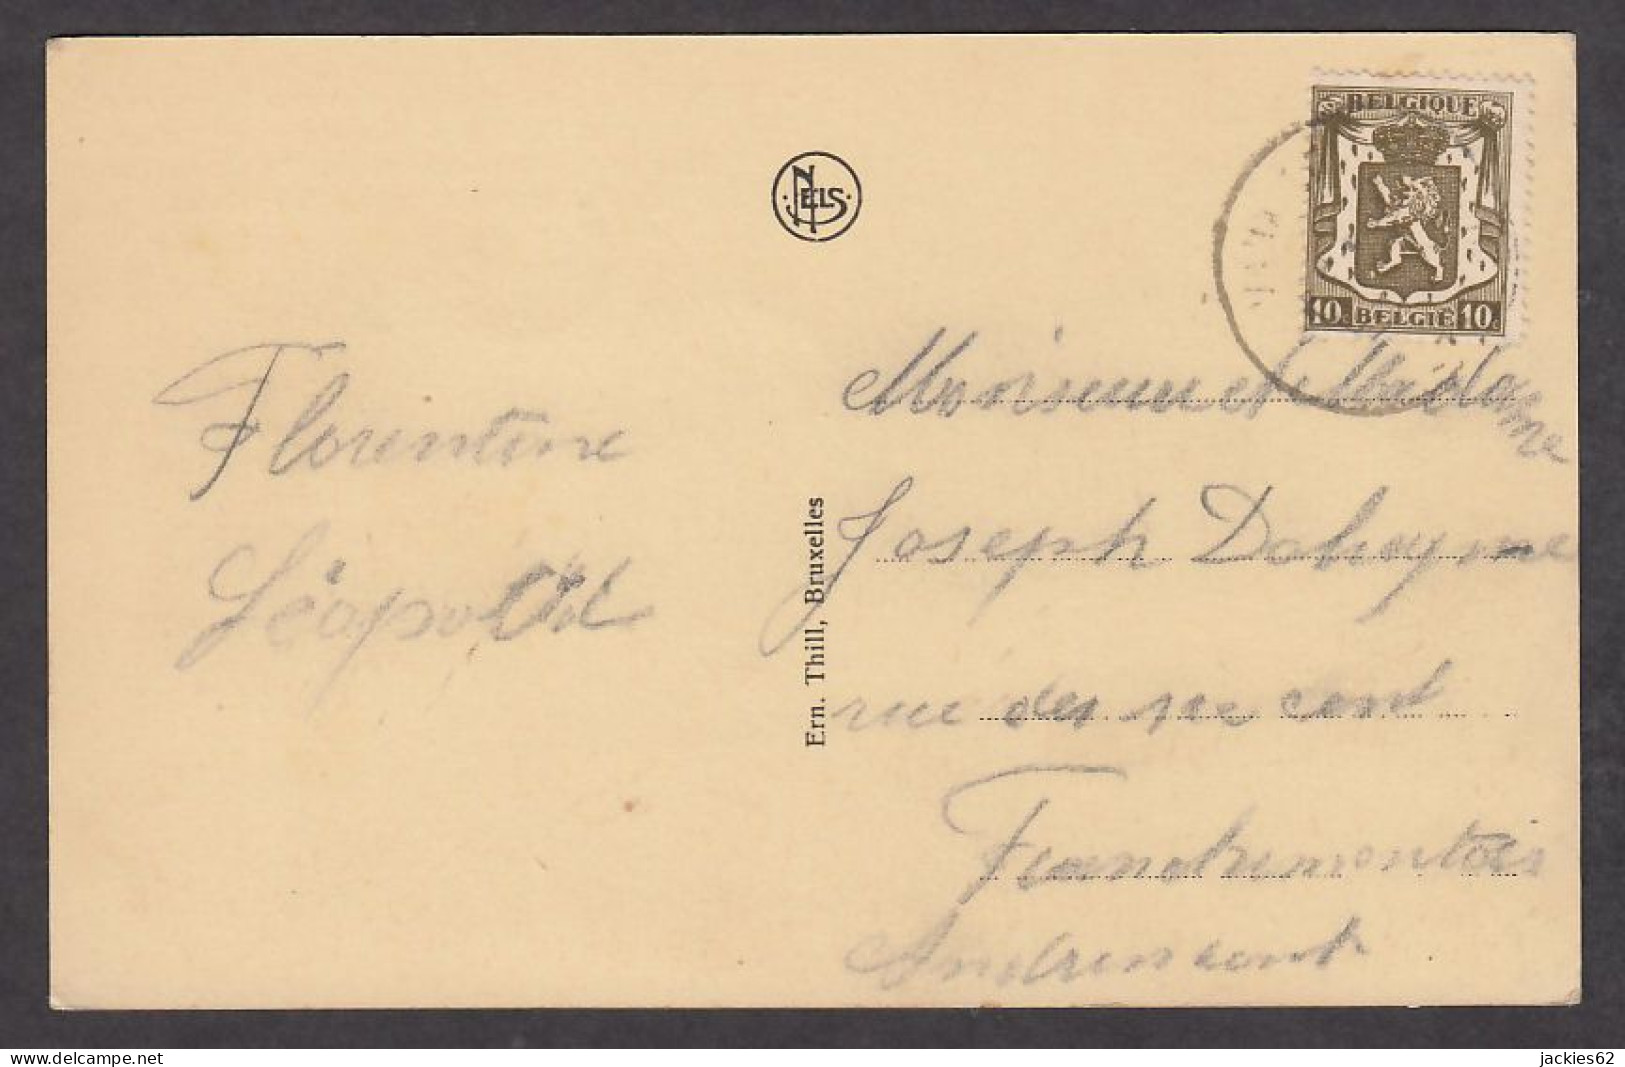 BELGIQUE
NELS
10c BELGIË 10c
Florentine
Léopold
Ern. Thill, Bruxelles
Monsieur et Madame
Joseph
rue des six cent
Franchimontois
Andrimont
www.delcampe.net
jackies62